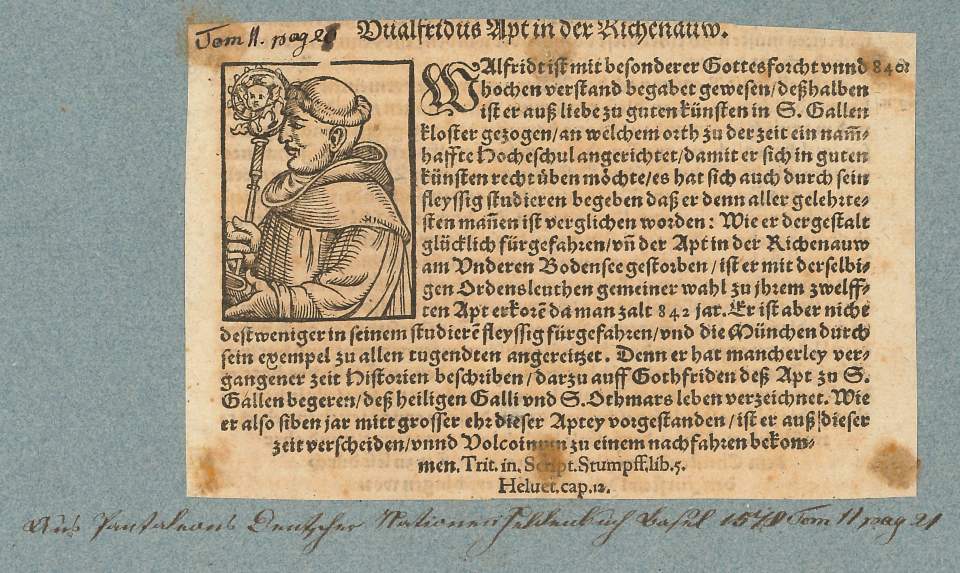 Tom 11. pag 21
Vualfridus Apt in der Richenauw.
WAlfridt ist mit besonderer Gottesforcht vnnd 840.
hochen verstand begabet gewesen/deßhalben
ist er auß liebe zu guten künsten in S. Gallen
kloster gezogen/an welchem orth zu der zeit ein nam̄-
haffte Hocheschul angerichtet/damit er sich in guten
künsten recht üben möchte/es hat sich auch durch sein
fleyssig studieren begeben daß er denn aller gelehrte-
sten mañen ist verglichen worden: Wie er dergestalt
glücklich fürgefahren/vñ der Apt in der Richenauw
am Vnderen Bodensee gestorben/ist er mit derselbi-
gen Ordensleuthen gemeiner wahl zu jhrem zwelff-
ten Apt erkorē da man zalt 842 jar. Er ist aber nicht
dest weniger in seinem studierē fleyssig fürgefahren/vnd die München durch
sein exempel zu allen tugendten angereitzet. Denn er hat mancherley ver-
gangener zeit Historien beschriben/darzu auff Gothfriden deß Apt zu S.
Gallen begeren/deß heiligen Galli vnd S. Othmars leben verzeichnet. Wie
er also siben jar mitt grosser ehr dieser Aptey vorgestanden/ist er auß dieser
zeit verscheiden/vnnd Volcoinum zu einem nachfahren bekom-
men. Trit. in. Script. Stumpff. lib. 5.
Heluet. cap. 12.
Aus Pantaleons Deutscher Nationen Heldenbuch Basel 1578 Tom 11 pag 21